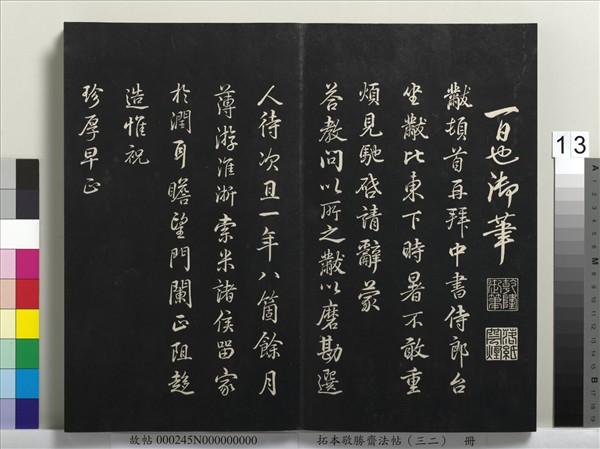 一日也御筆
乾隆御筆
落紙雲煙
黻頓首再拜中書侍郎台
坐黻比東下時暑不敢重
煩見馳啟請辭蒙
荅教問以所之黻以磨勘選
人待次且一年八箇餘月
薄游淮浙索米諸侯留家
於潤耳瞻望門闌正阻趍
造惟祝
珍厚早正
13
故帖 000245N000000000
拓本敬勝齋法帖(三二) 冊